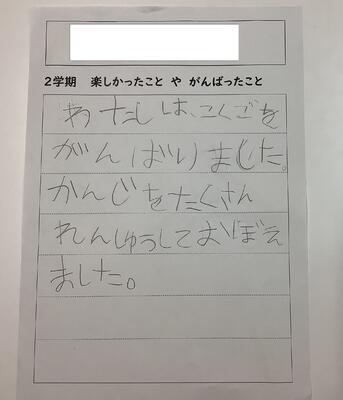 2学期 楽しかったこと や がんばったこと
わたしは、こくごを
がんばりました。
かんじをたくさん
れんしゅうしておぼえ
ました。